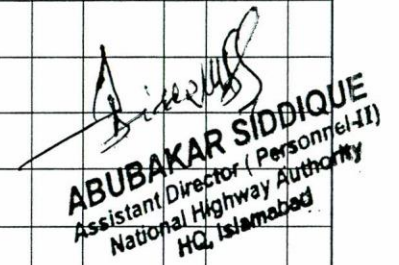 ABUBAKAR SIDDIQUE
Assistant Director ( Personnel-II)
National Highway Authority
HQ, Islamabad